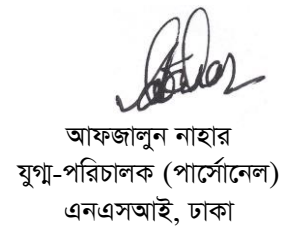 আফজালুন নাহার
যুগ্ম-পরিচালক (পার্সোনেল)
এনএসআই, ঢাকা